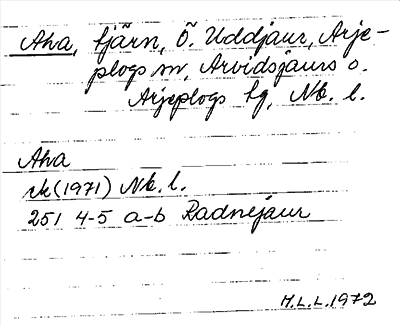 Aha, tjärn, Ö. Uddjaur, Arje-
plogs sn, Arvidsjaurs o.
Arjeplogs tg, Nb. l.
Aha
rk (1971) Nb. l.
251 4-5 a-b Radnejaur
H.L.L. 1972